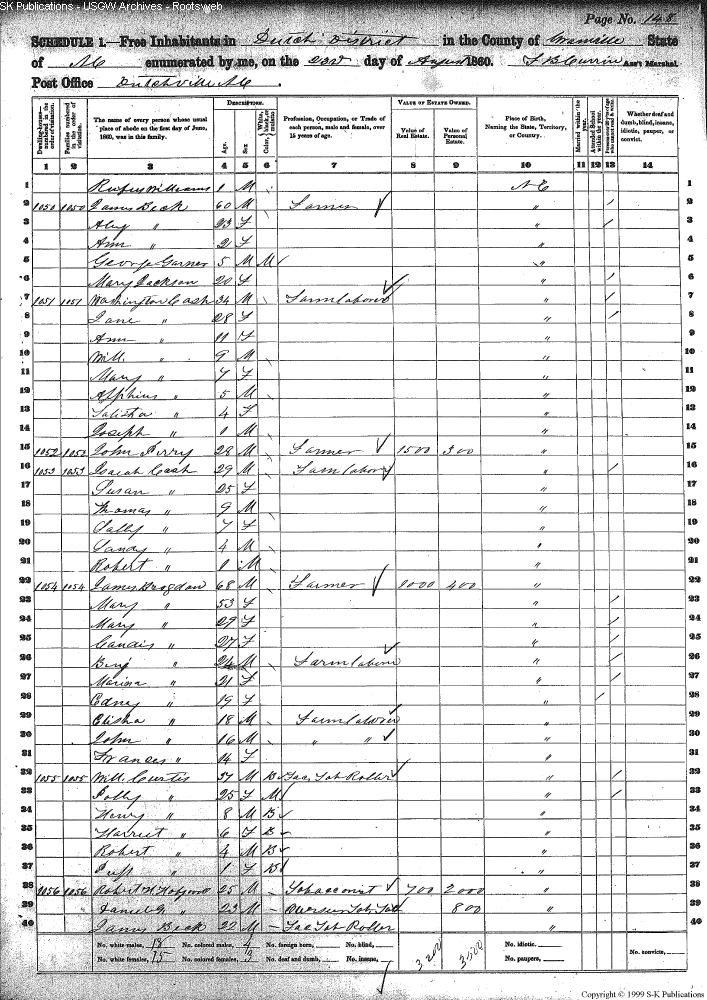 SK Publications - USGW Archives - Rootsweb
Page No. 148
SCHEDULE 1.—Free Inhabitants in Dutch District in the County of Granville State
of NC enumerated by me, on the 22nd day of August 1860. F B Currin Ass't Marshal.
Post Office Dutchville NC.
Dwelling-houses numbered in the order of visitation.
Families numbered in the order of visitation.
The name of every person whose usual place of abode on the first day of June, 1860, was in this family.
DESCRIPTION.
Age.
Sex
Color, White, black, or mulatto
Profession, Occupation, or Trade of each person, male and female, over 15 years of age.
VALUE OF ESTATE OWNED.
Value of Real Estate.
Value of Personal Estate.
Place of Birth, Naming the State, Territory, or Country.
Married within the year.
Attended School within the year.
Persons over 20 y'rs of age who cannot read & write.
Whether deaf and dumb, blind, insane, idiotic, pauper, or convict.
1 2 3 4 5 6 7 8 9 10 11 12 13 14
1 Rufus Williams 1 M NC 1
2 1050 1050 James Beck 60 M Farmer " / 2
3 Aley " 23 F " / 3
4 Ann " 21 F " 4
5 George Garner 5 M M " 5
6 Mary Jackson 20 F " / 6
7 1051 1051 Washington Cash 34 M Farm laborer " / 7
8 Jane " 28 F " / 8
9 Ann " 11 F " 9
10 Will. " 9 M " 10
11 Mary " 7 F " 11
12 Alphius " 5 M " 12
13 Talitha " 4 F " 13
14 Joseph " 1 M " 14
15 1052 1052 John Perry 28 M Farmer 1500 300 " 15
16 1053 1053 Isaiah Cash 29 M Farm laborer " / 16
17 Susan " 25 F " 17
18 Thomas " 9 M " 18
19 Sally " 7 F " 19
20 Sandy " 4 M " 20
21 Robert " 1 M " 21
22 1054 1054 James Brogdon 68 M Farmer 8000 400 " 22
23 Mary " 53 F " / 23
24 Mary " 29 F " / 24
25 Candis " 27 F " / 25
26 Benj " 24 M Farm laborer " / 26
27 Marina " 21 F " / 27
28 Edney " 19 F " / 28
29 Elisha " 18 M Farm laborer " 29
30 John " 16 M " " " 30
31 Frances " 14 F " 31
32 1055 1055 Will. Curtis 37 M B Fac Tob Roller " / 32
33 Polly " 25 F M " / 33
34 Henry " 8 M B " 34
35 Harriet " 6 F B " 35
36 Robert " 4 M B " 36
37 " 1 F B " 37
38 1056 1056 Robert H Hobgood 25 M Tobacconist 700 2000 " 38
39 Daniel G. " 23 M Overseer Tob. 800 " 39
40 James Beck 22 M Fac Tob Roller " 40
No. white males, 18 No. colored males, 4 No. foreign born, No. blind, No. idiotic,
No. white females, 15 No. colored females, 3 No. deaf and dumb, No. insane, No. paupers, No. convicts,
3200 3500
Copyright © 1999 S-K Publications